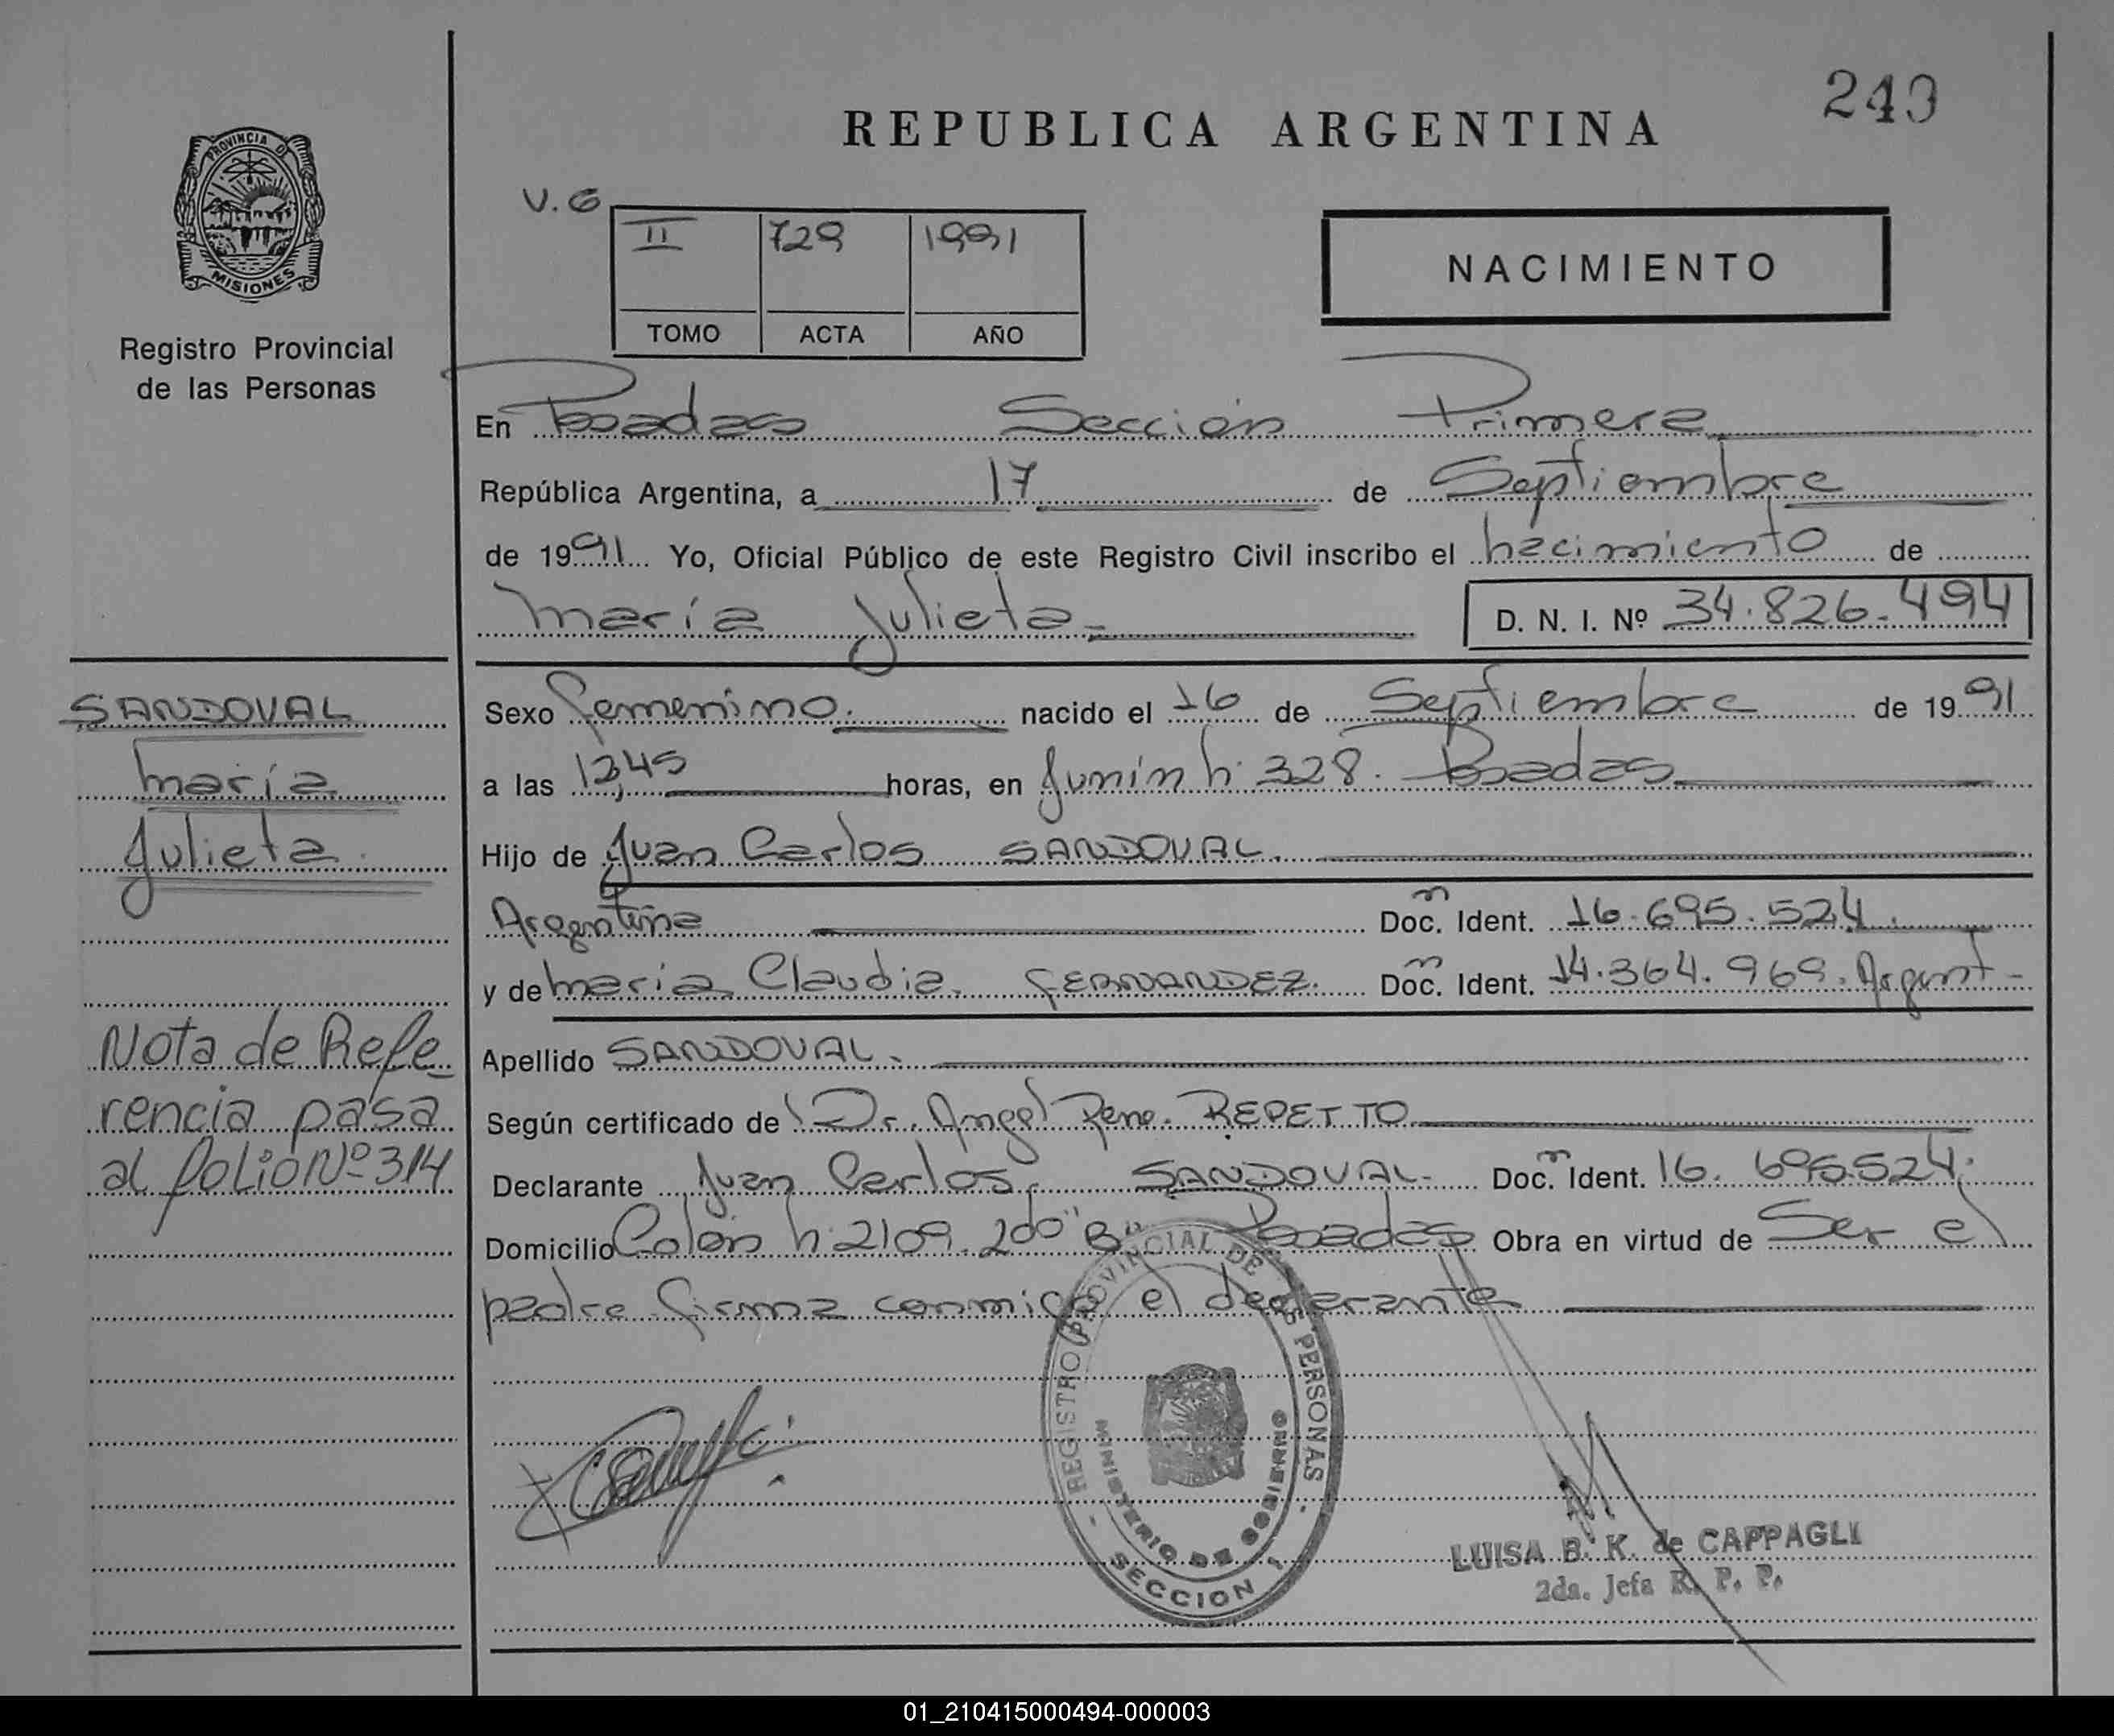 243
REPUBLICA ARGENTINA
PROVINCIA DE
MISIONES
Registro Provincial
de las Personas
V. G
II 729 1991
TOMO ACTA AÑO
NACIMIENTO
En Posadas Sección Primera
República Argentina, a 17 de Septiembre
de 1991 Yo, Oficial Público de este Registro Civil inscribo el nacimiento de
María Julieta
D. N. I. Nº 34.826.494
SANDOVAL
María
Julieta.
Nota de Refe
rencia pasa
al folio Nº 314
Sexo femenino. nacido el 16 de Septiembre de 1991
a las horas, en Junín n: 328. Posadas
Hijo de Juan Carlos SANDOVAL.
Argentina Doc. Ident. 16.695.524.
y de María Claudia FERNANDEZ. Doc. Ident. 14.364.969. Argent-
Apellido SANDOVAL.
Según certificado de Dr. Angel Rene. REPETTO
Declarante Juan Carlos SANDOVAL- Doc. Ident. 16.695.524.
Domicilio Colón n: 2109. 2do "B" Posadas Obra en virtud de Ser el
padre firma conmigo el declarante
REGISTRO PROVINCIAL DE LAS PERSONAS
MINISTERIO DE GOBIERNO
SECCION 1
LUISA B. K. de CAPPAGLI
2da. Jefa R. P. P.
01_210415000494-000003